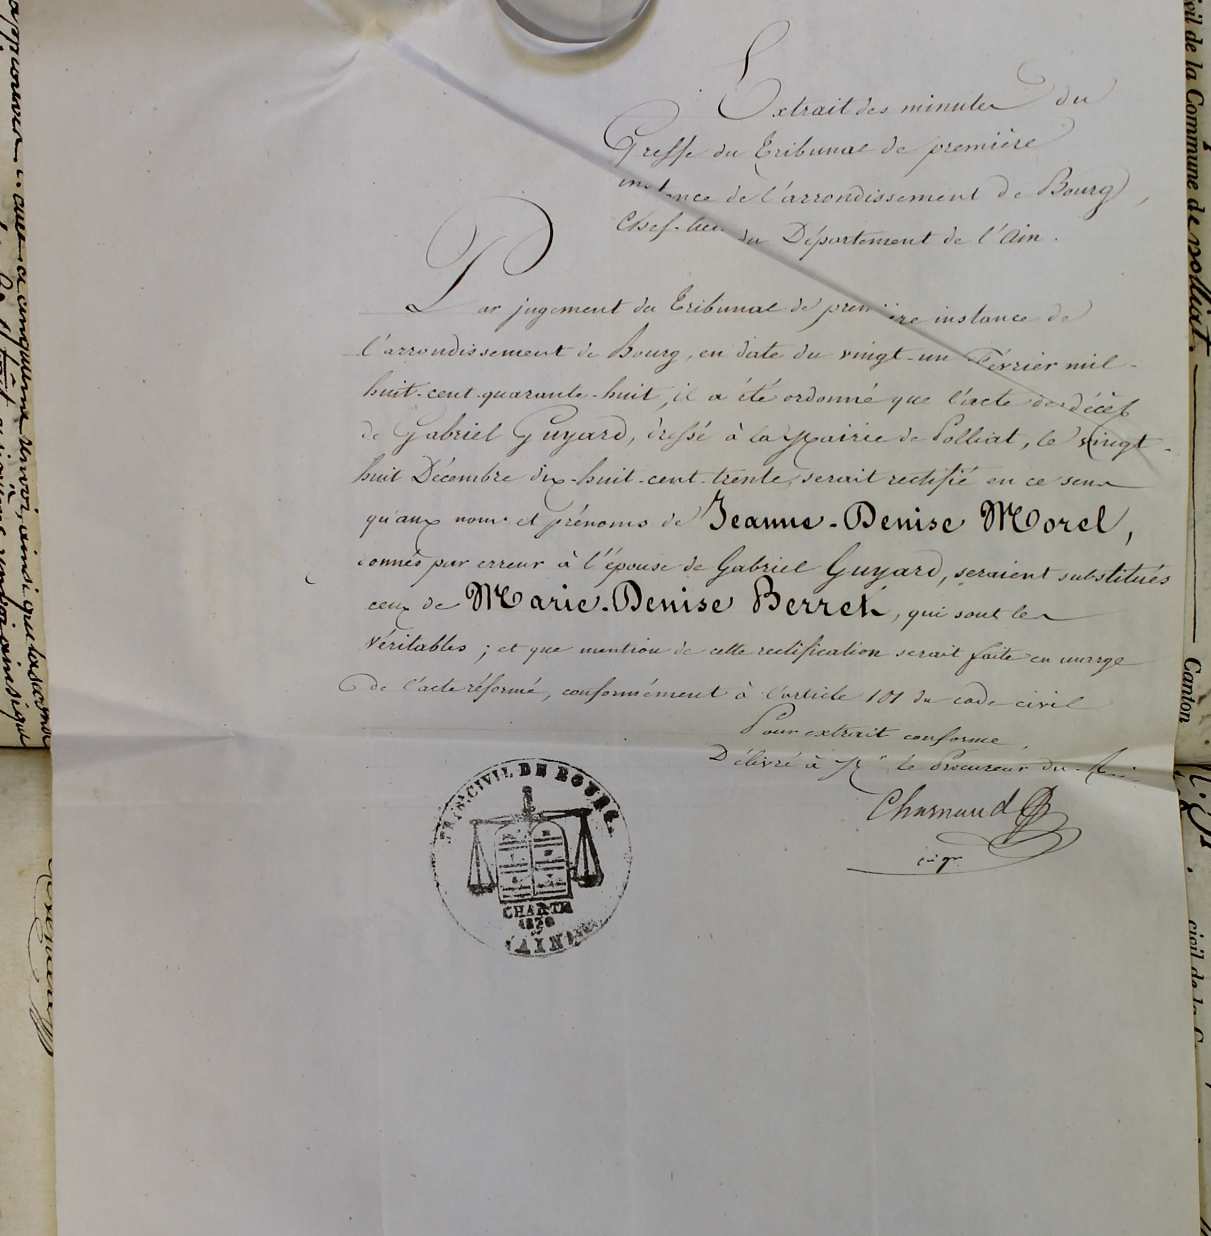 Extrait des minutes du
Greffe du Tribunal de première
instance de l'arrondissement de Bourg,
Chef-lieu du Département de l'Ain.
Par jugement du Tribunal de première instance de
l'arrondissement de Bourg, en date du vingt-un Février mil-
huit-cent-quarante-huit, il a été ordonné que l'acte de décès
de Gabriel Guyard, dressé à la Mairie de Polliat, le vingt-
huit Décembre dix-huit-cent-trente, serait rectifié en ce sens
qu'aux noms et prénoms de Jeanne-Denise Morel,
donnés par erreur à l'épouse de Gabriel Guyard, seraient substitués
ceux de Marie-Denise Berret, qui sont les
véritables ; et que mention de cette rectification serait faite en marge
de l'acte réformé, conformément à l'article 101 du code civil
Pour extrait conforme,
Délivré à Mr le Procureur du Roi
Charnaud
TRIB. CIVIL DE BOURG
CHARTE
1830
civil de la Commune de Polliat.
Canton
civil de la C